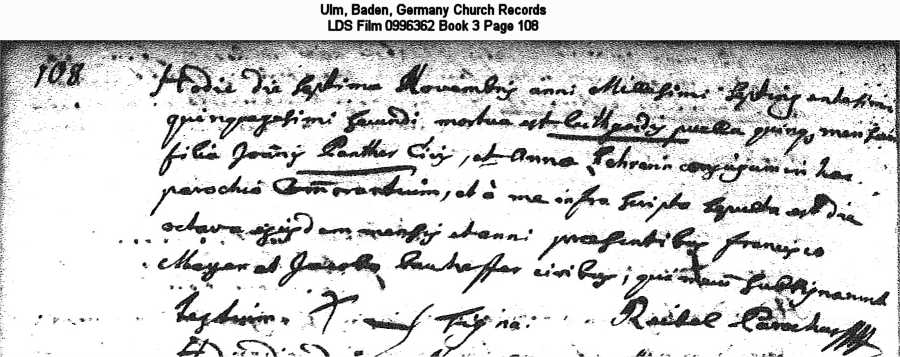 Ulm, Baden, Germany Church Records
LDS Film 0996362 Book 3 Page 108
108
Hodie die septima Novembris anni Millesimi septingentesimi
quinquagesimi secundi mortua est puella quinq mensium
filia Joannis Panther civis, et Anna conjugum in hac
parochia Commorantium, et à me infra scripto sepulta est die
octava ejusdem mensis et anni praesentibus francisco
Meyer et Jacobo civibus, qui mecum subsignarunt
testium. signa. Reibel Parochus